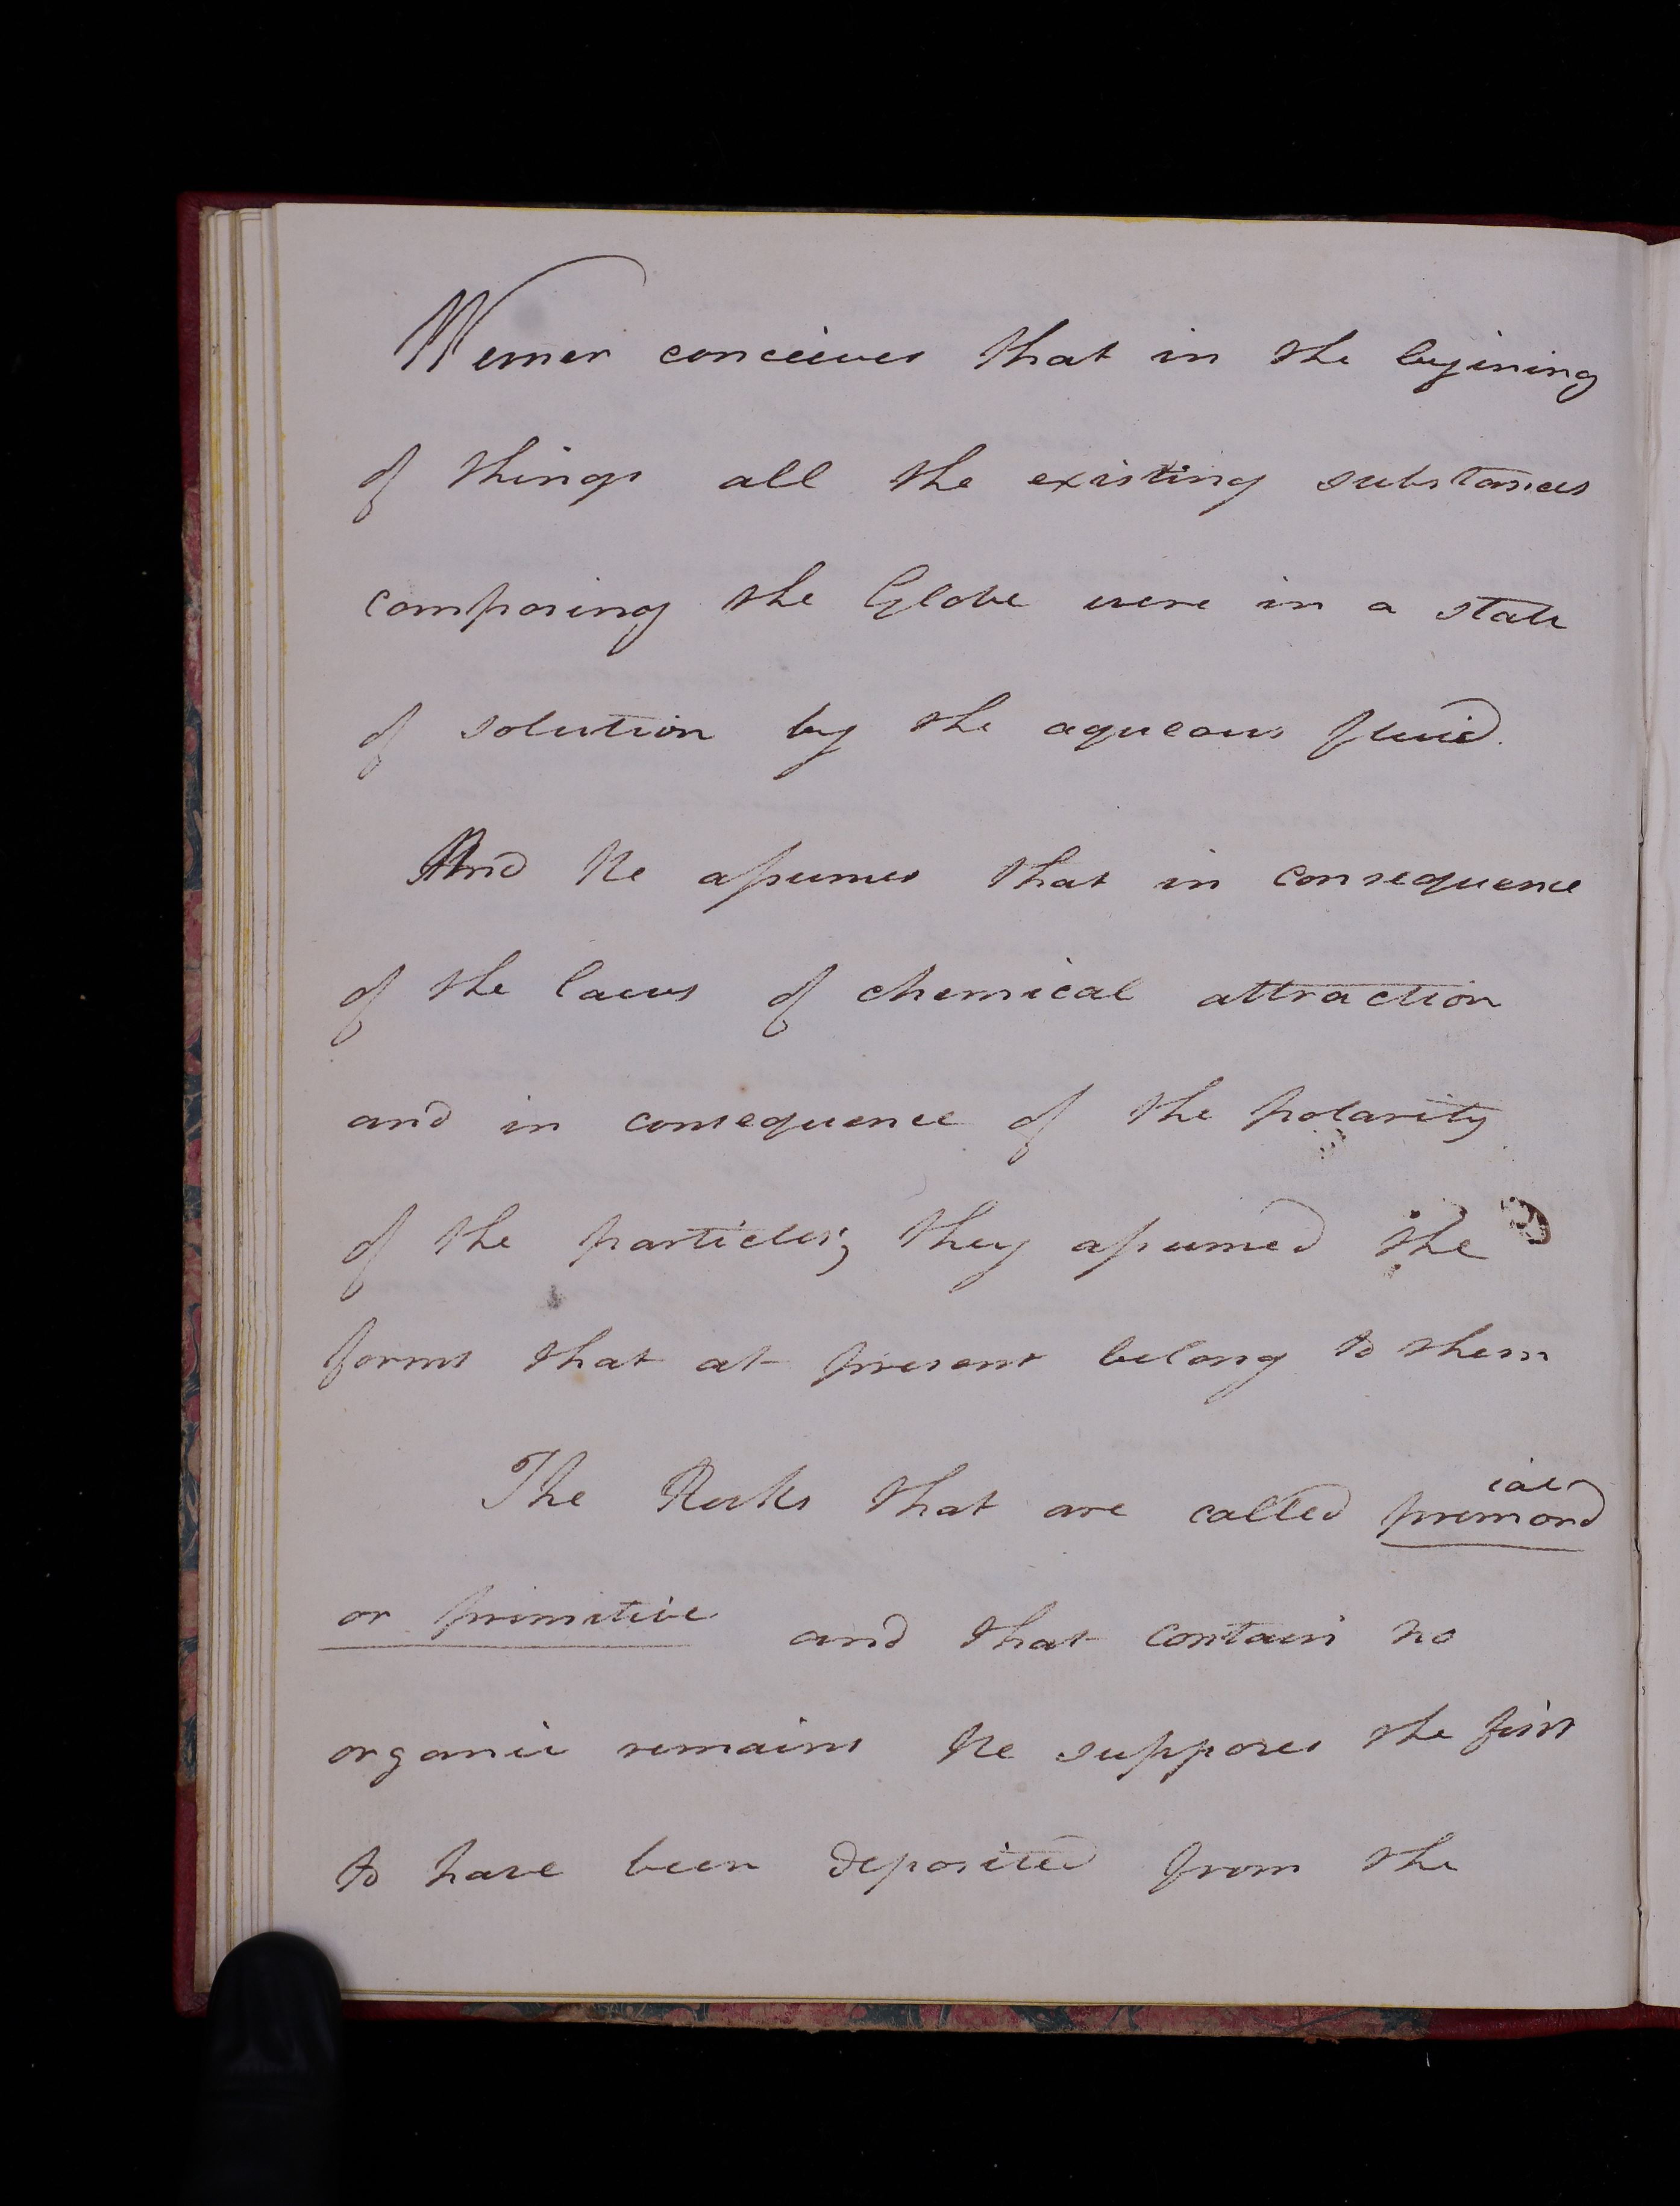 Werner conceives that in the begining
of things all the existing substances
composing the Globe were in a state
of solution by the aqueous fluid.
And He assumes that in consequence
of the laws of chemical attraction
and in consequence of the polarity
of the particles; they assumed the
forms that at present belong to them
The Rocks that are called primordial
or primitive and that contain no
organic remains He supposes the first
to have been deposited from the